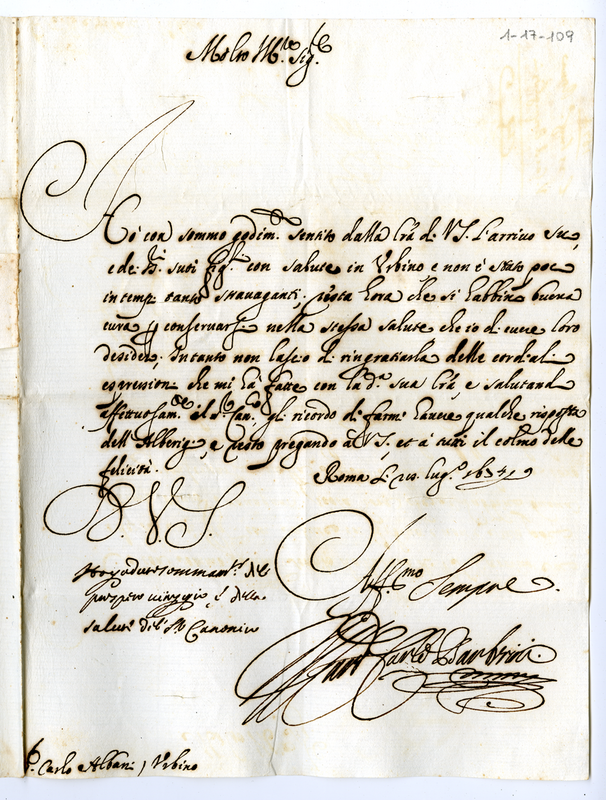 1-17-109
Molto Ill.re Sig.re
Hò con sommo godim.to sentito dalla l'rã di V.S. l'arrivo suo,
e de i suoi fig.li con salute in Urbino e non è stato poco
in tempi tanto stravaganti, resta hora che si habbino buona
cura p conservarsi nella stessa salute che io di cuore loro
desidero, Intanto non lascio di ringratiarla delle cordiali
espressioni che mi hà fatte con la d.a sua l'rã, e salutando
affettuosam.te il s.r Can.co gli ricordo di farmi havere qualche risposta
dell'Alberig, e resto pregando à V.S., et à tutti il colmo delle
felicità. Roma li 20 lug.o 1654
D. V. S.
del
prospero viaggio, e della
salute del s.r Canonico
Aff.mo sempre
Carlo
S.r Carlo Albani / Urbino